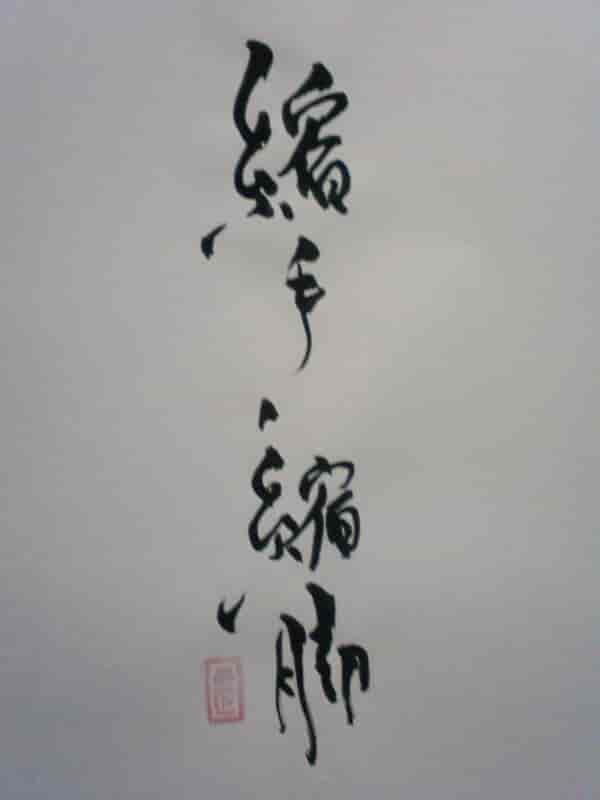 縮手縮脚